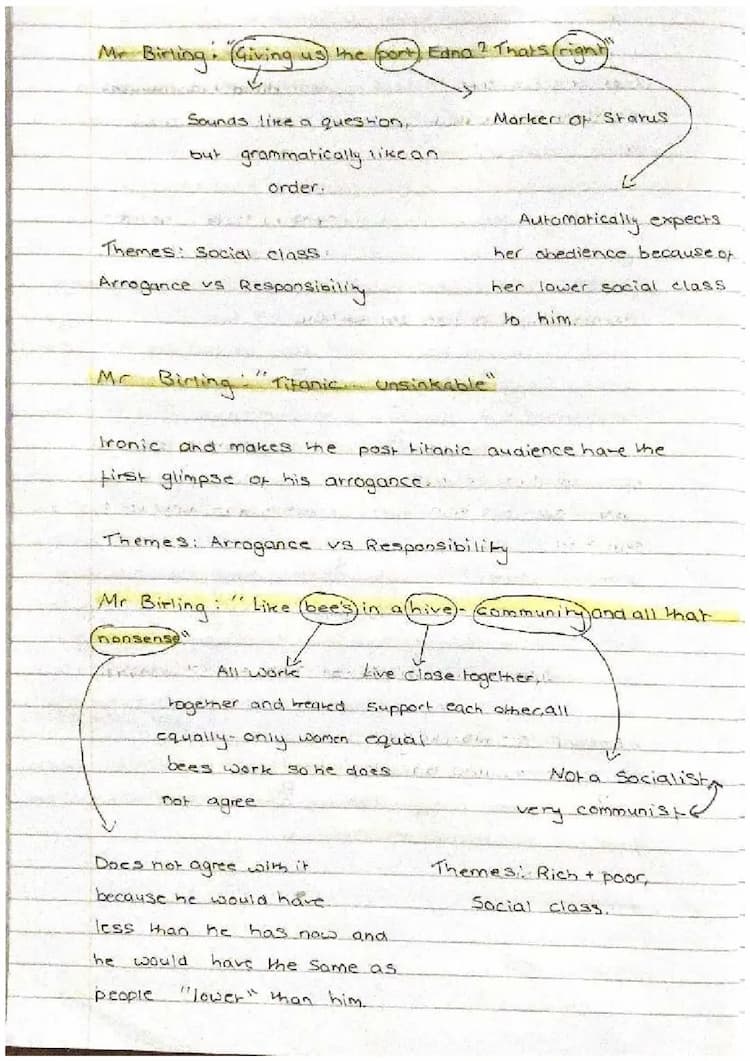 Mr Birling: "Giving us the port Edna? Thats right"
Sounds like a question,
but grammatically like an
order.
Marker of Status
Automatically expects
her obedience because of
her lower social class
to him.
Themes: Social class.
Arrogance vs Responsibility
Mr Birling: "Titanic... unsinkable"
Ironic and makes the post titanic audience have the
first glimpse of his arrogance.
Themes: Arrogance vs Responsibility
Mr Birling: "Like bee's in a hive - community and all that
nonsense"
All work
together and treated
equally - only women
bees work so he does
not agree
Live close together,
support each other, all
equal
Not a Socialist,
very communist
Does not agree with it
because he would have
less than he has now and
he would have the same as
people "lower" than him.
Themes: Rich + poor,
Social class.